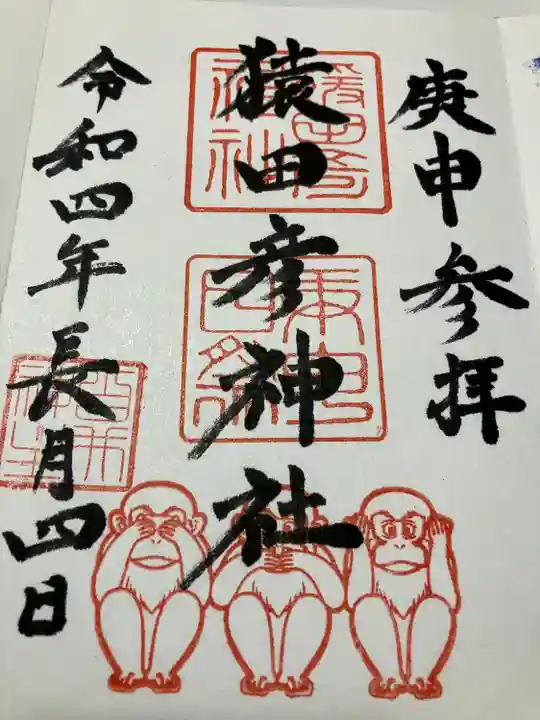 庚申参拝
猿田彦神社
令和四年長月四日
猿田彦神社
庚申日祭